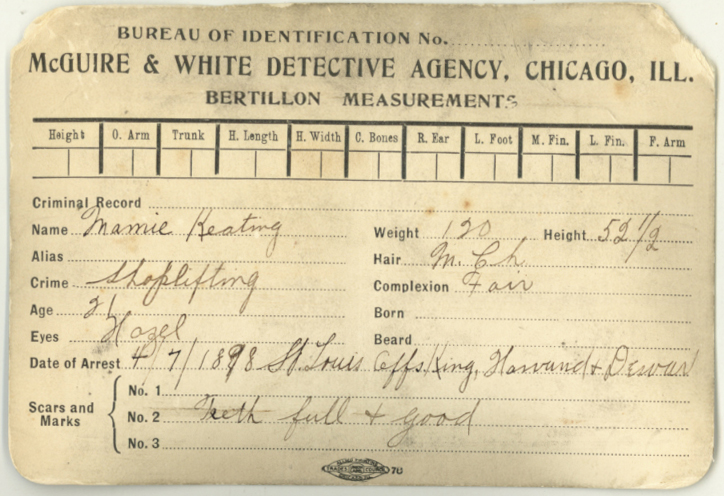 BUREAU OF IDENTIFICATION No.
McGUIRE & WHITE DETECTIVE AGENCY, CHICAGO, ILL.
BERTILLON MEASUREMENTS
Height O. Arm Trunk H. Length H. Width C. Bones R. Ear L. Foot M. Fin. L. Fin. F. Arm
Criminal Record
Name Mamie Keating Weight 120 Height 52 1/2
Alias Hair M. Ch
Crime Shoplifting Complexion Fair
Age 21 Born
Eyes Hazel Beard
Date of Arrest 4/7/1898 St. Louis Offs King, & Dewar
Scars and Marks No. 1
No. 2 Teeth full + good
No. 3
78